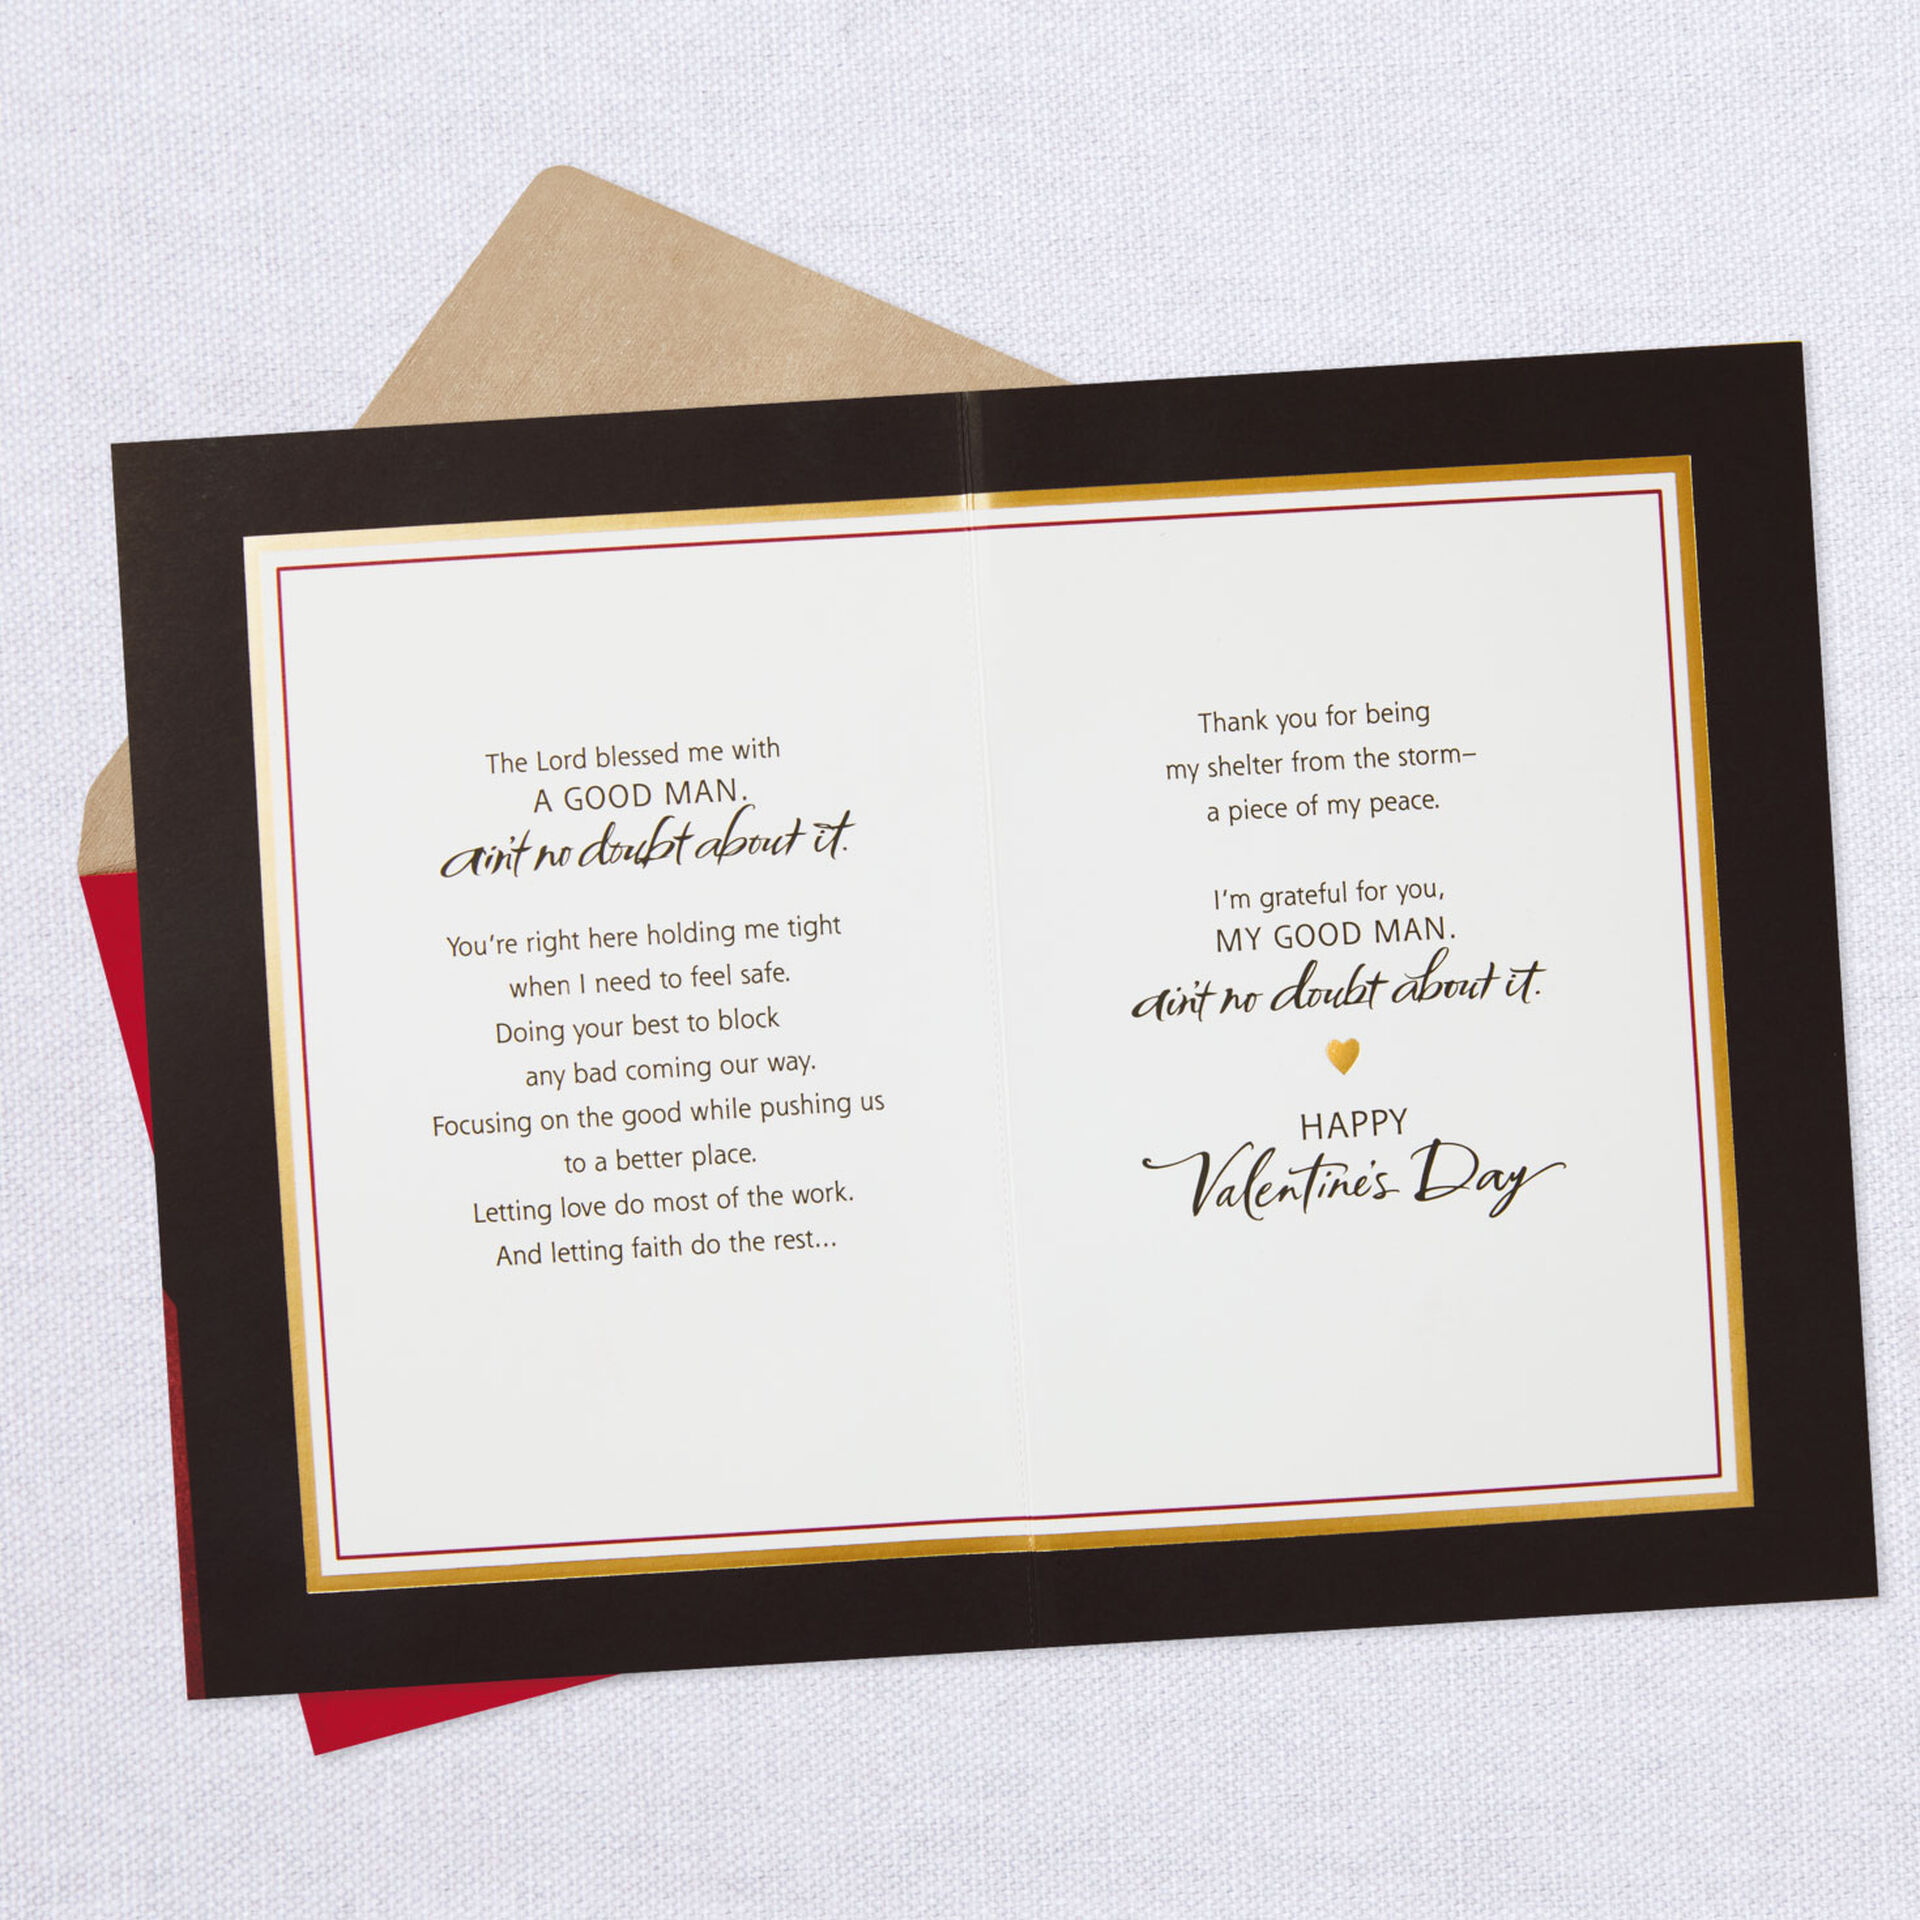 The Lord blessed me with
A GOOD MAN.
ain't no doubt about it.
You're right here holding me tight
when I need to feel safe.
Doing your best to block
any bad coming our way.
Focusing on the good while pushing us
to a better place.
Letting love do most of the work.
And letting faith do the rest...
Thank you for being
my shelter from the storm–
a piece of my peace.
I'm grateful for you,
MY GOOD MAN.
ain't no doubt about it.
HAPPY
Valentine's Day